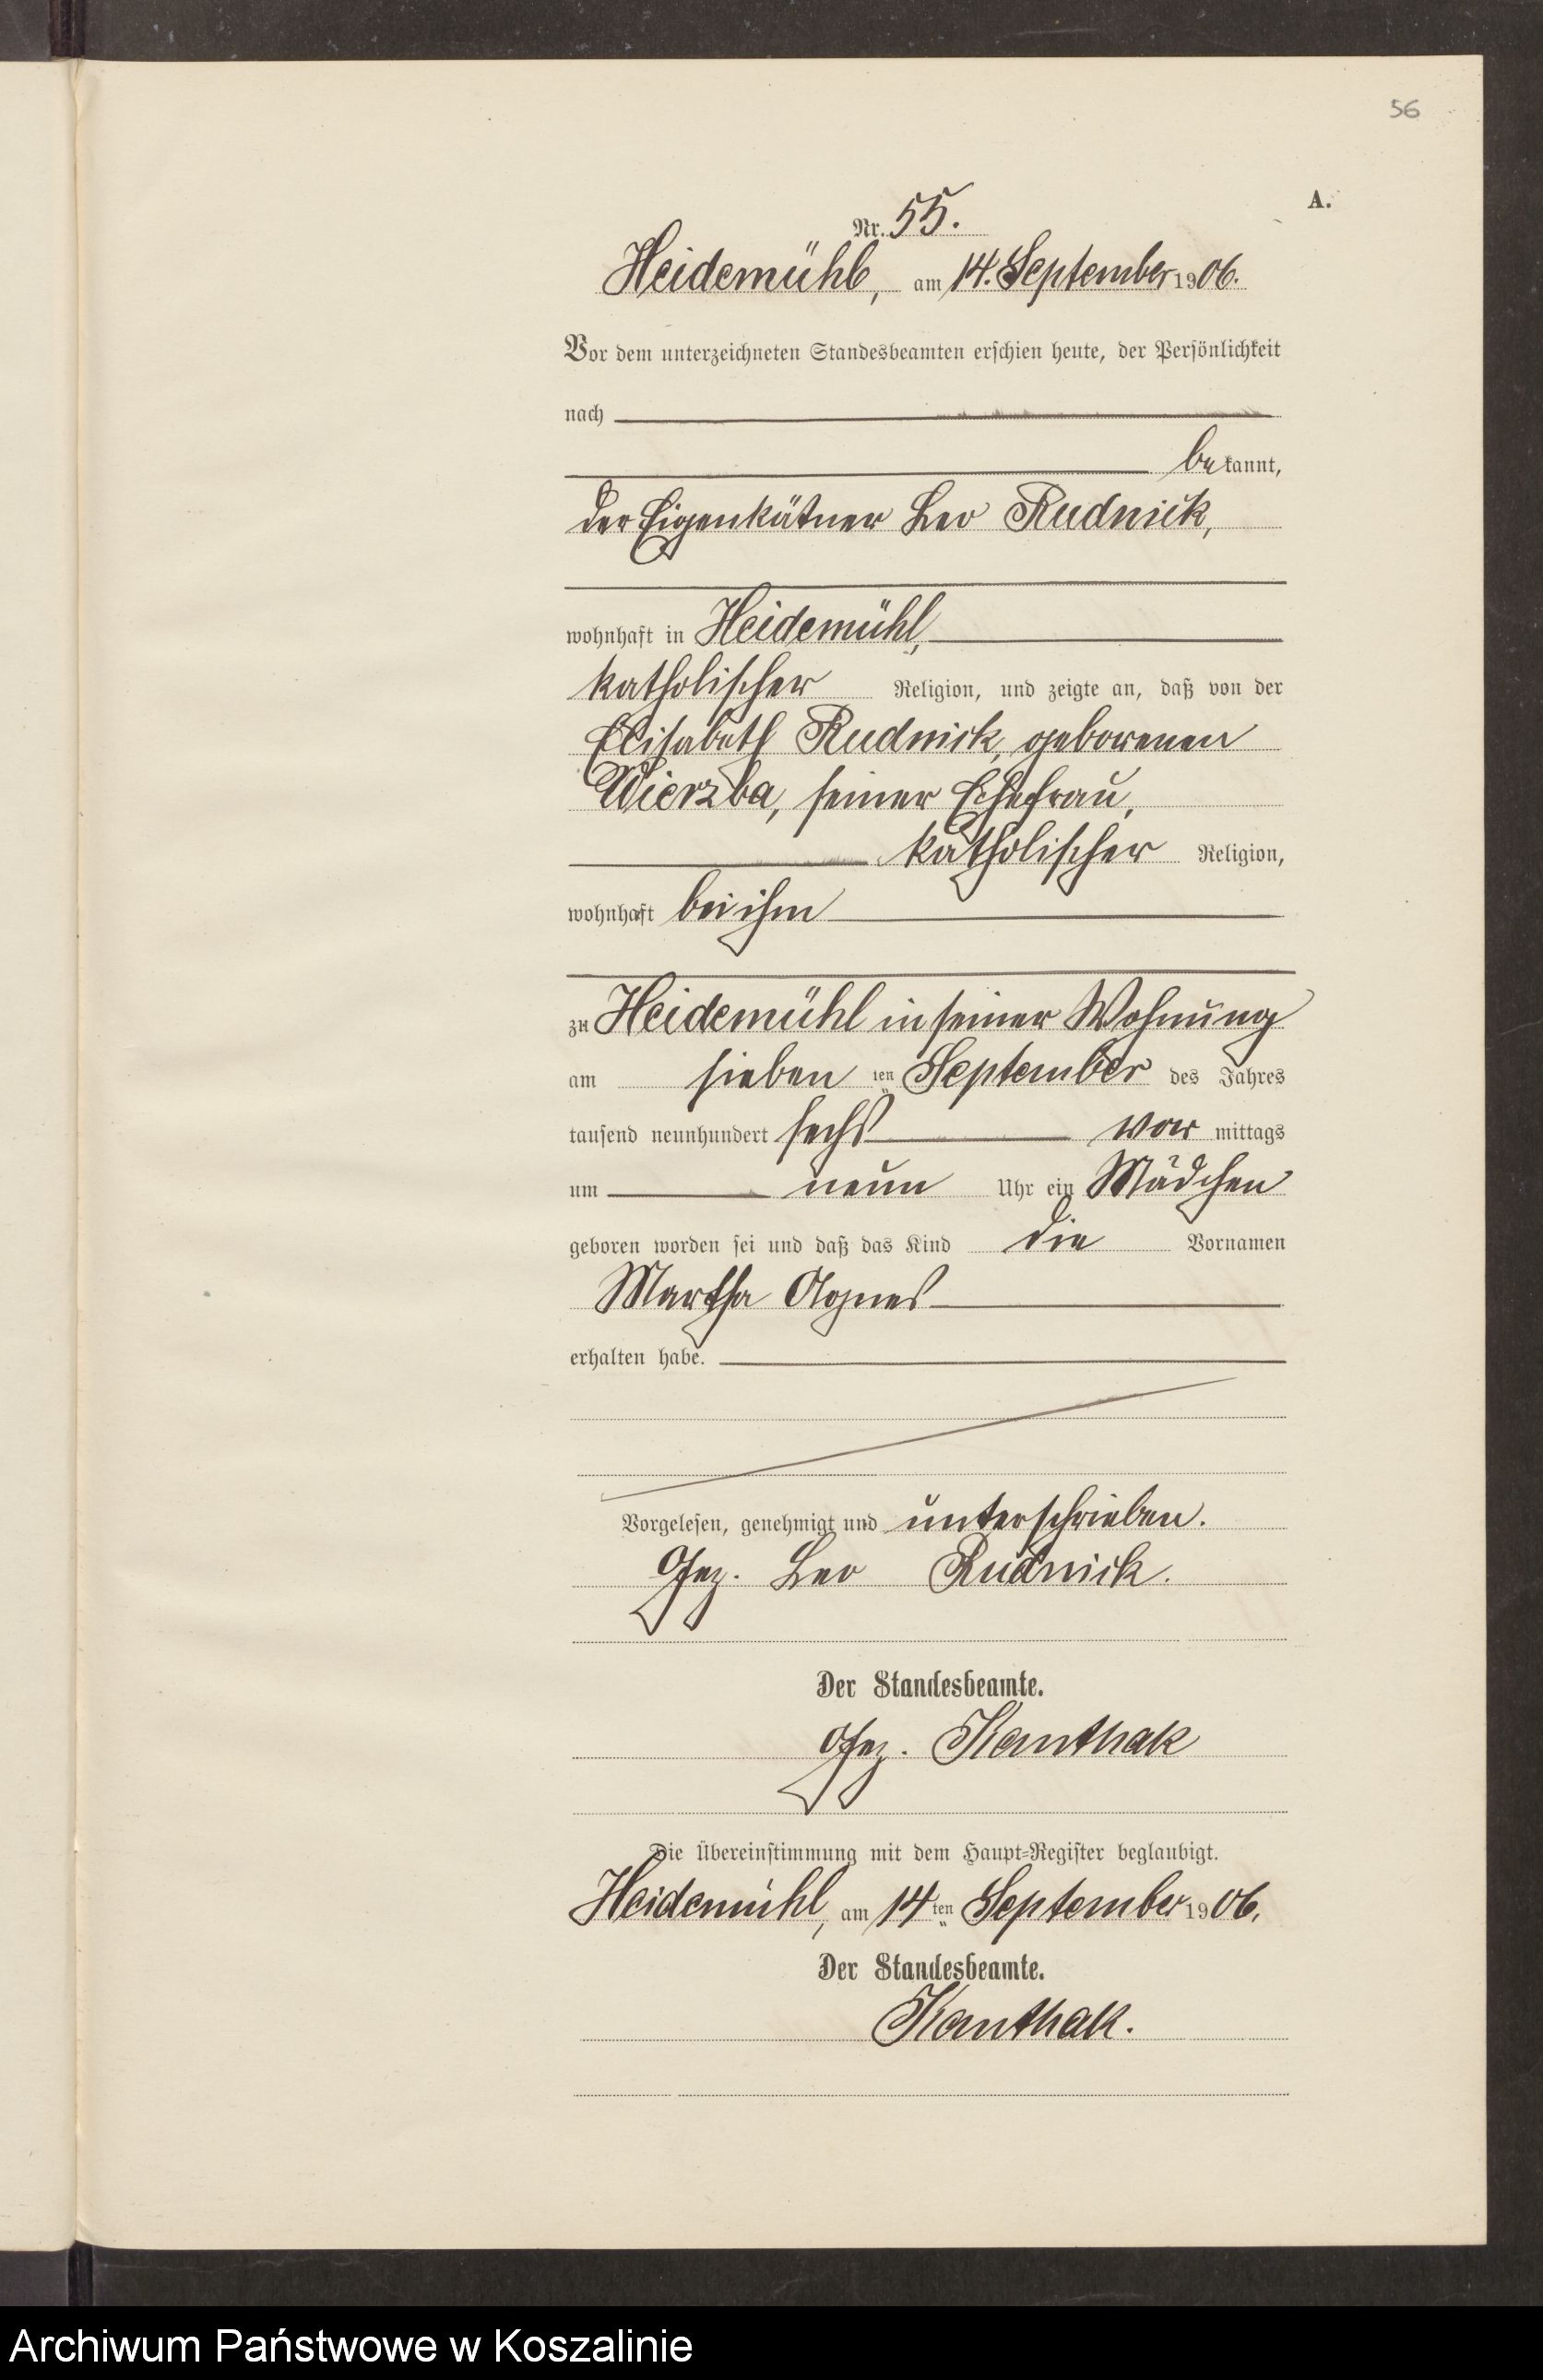 56
A.
Nr. 55.
Heidemühl, am 14. September 1906.
Vor dem unterzeichneten Standesbeamten erschien heute, der Persönlichkeit
nach
bekannt,
der Eigenkätner Leo Rudnick,
wohnhaft in Heidemühl,
katholischer Religion, und zeigte an, daß von der
Elisabeth Rudnick, geborenen
Wierzba, seiner Ehefrau,
katholischer Religion,
wohnhaft bei ihm
zu Heidemühl in seiner Wohnung
am sieben ten September des Jahres
tausend neunhundert sechs vor mittags
um neun Uhr ein Mädchen
geboren worden sei und daß das Kind die Vornamen
Martha Agnes
erhalten habe.
Vorgelesen, genehmigt und unterschrieben.
Gez. Leo Rudnick.
Der Standesbeamte.
Gez. Kanthak
Die Übereinstimmung mit dem Haupt-Register beglaubigt.
Heidemühl, am 14ten September 1906.
Der Standesbeamte.
Kanthak.
Archiwum Państwowe w Koszalinie